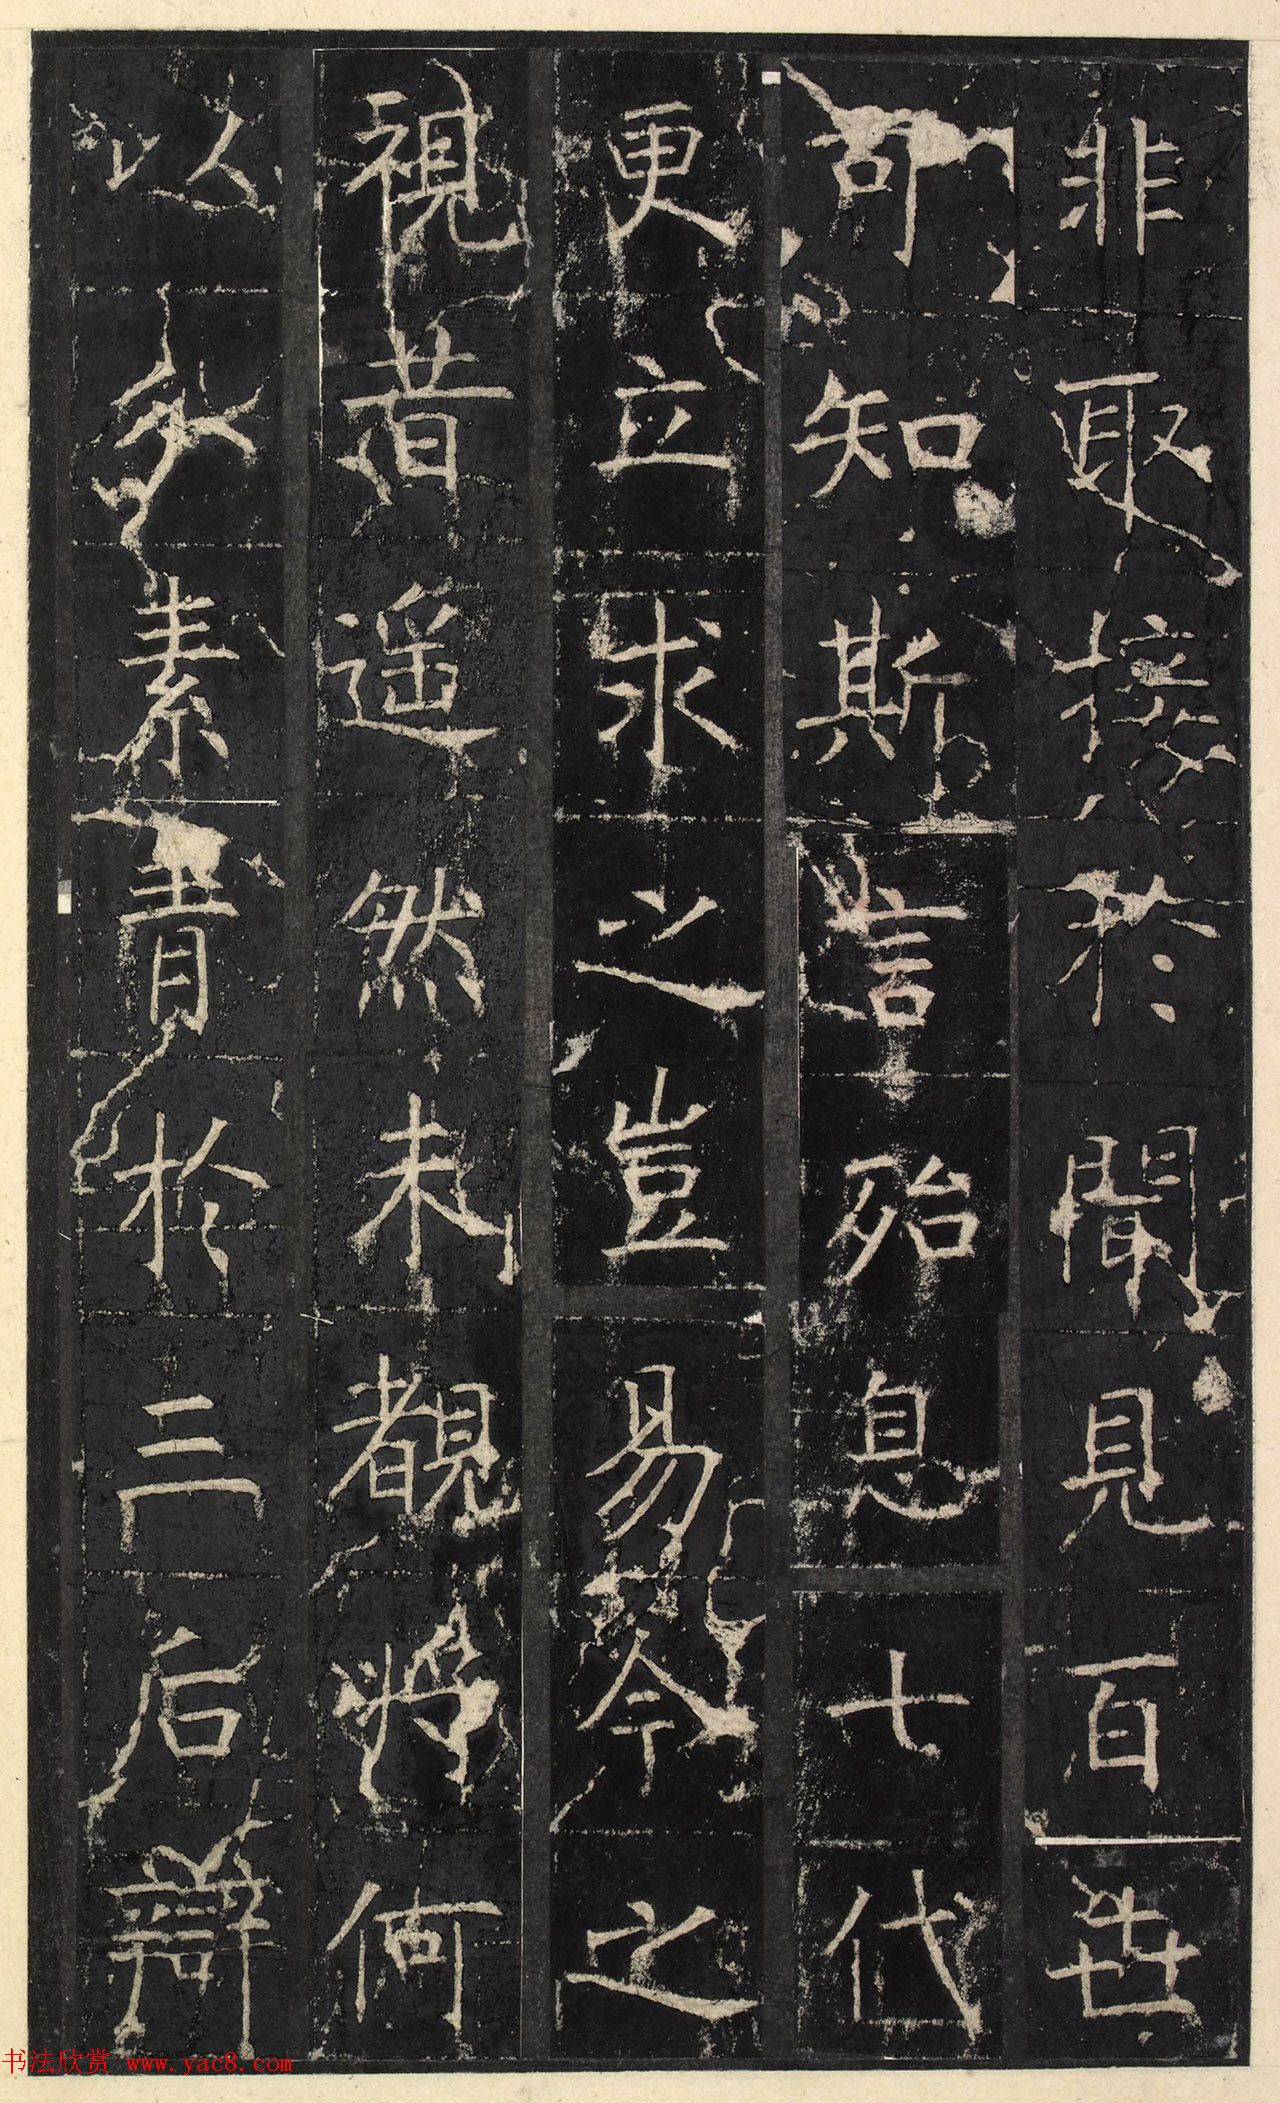 非取接於聞見百世
可知斯言殆息七代
更立求之豈易今之
視昔遥然未覩將何
以永素青於三后辯
书法欣赏 www.yac8.com